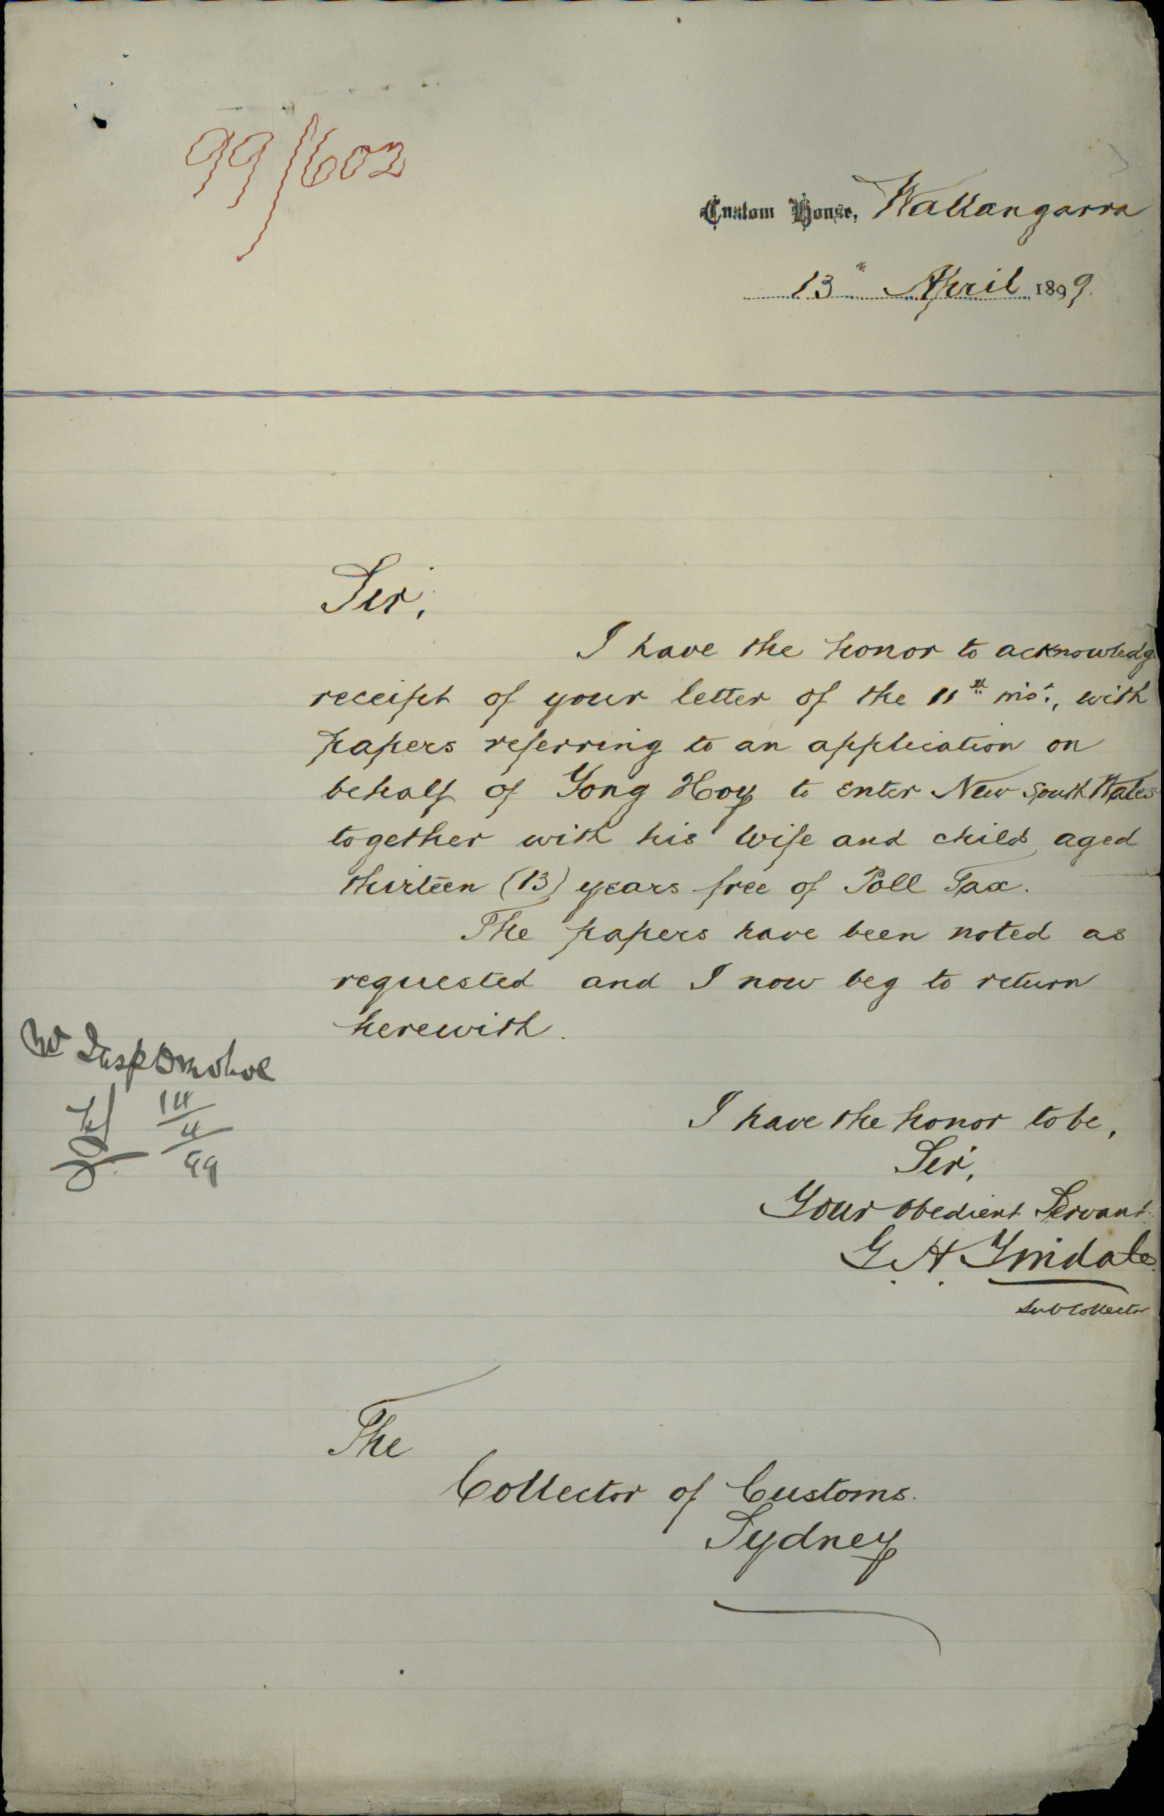 99/1602
Custom House, Wallangarra
13th April 1899.
Sir,
I have the honor to acknowledg
receipt of your letter of the 11th inst., with
papers referring to an application on
behalf of Yong Hoy to enter New South Wales
together with his wife and child aged
thirteen (13) years free of Poll Tax.
The papers have been noted as
requested and I now beg to return
herewith.
Mr Insp Donohoe
14/4/99
I have the honor to be,
Sir,
Your obedient Servant
G. H. Tindale
Sub Collector
The
Collector of Customs.
Sydney